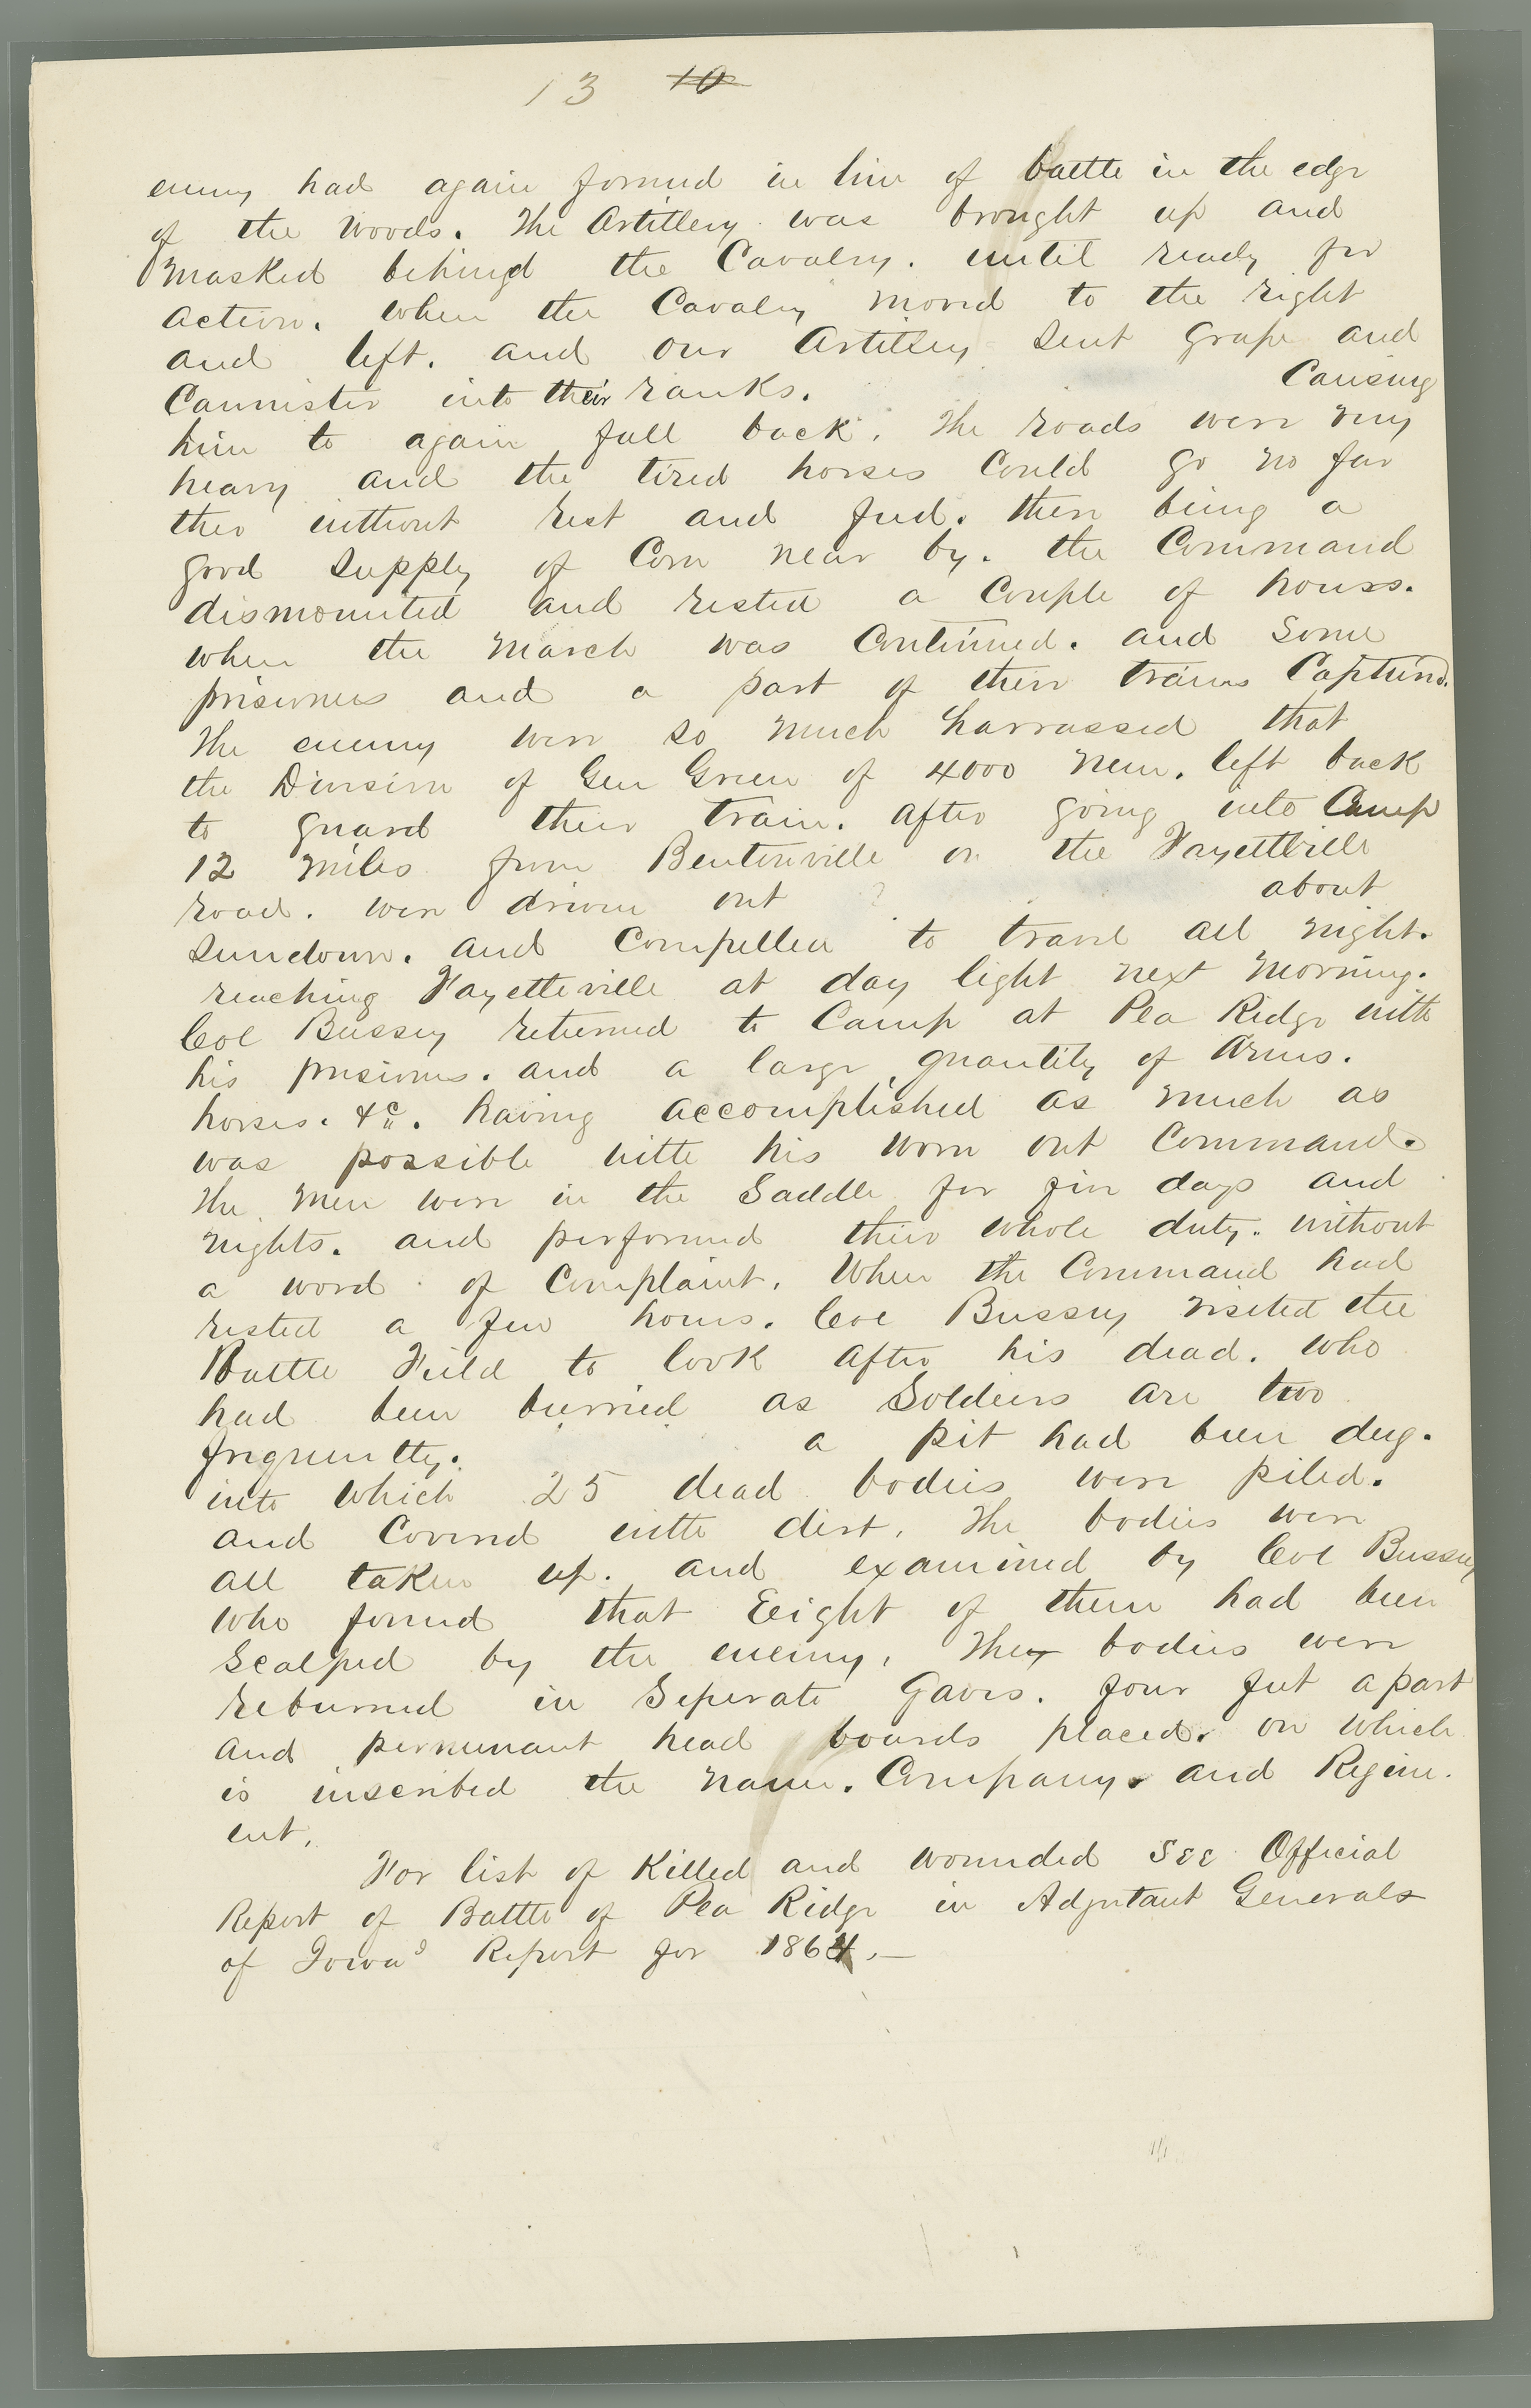 13 10
enemy had again formed in line of battle in the edge
of the woods. The Artillery was brought up and
masked behind the Cavalry. until ready for
action. when the Cavalry moved to the right
and left. and our Artillery sent grape and
Cannister into their ranks. Causing
him to again fall back. The roads were very
heavy and the tired horses could go no far
ther without rest and feed. there being a
good supply of Corn near by. the Command
dismounted and rested a Couple of hours.
when the march was Continued. and some
prisoners and a part of their trains Captured.
The enemy were so much harrassed that
the Division of Gen Green of 4000 men. left back
to guard their train. after going into Camp
12 miles from Bentonville on the Fayetteville
road. were driven out about
sundown. and Compelled to travel all night.
reaching Fayetteville at day light next morning.
Col Bussey returned to Camp at Pea Ridge with
his prisoners. and a large quantity of Arms.
horses. &c. having accomplished as much as
was possible with his worn out Command.
The men were in the Saddle for five days and
nights. and performed their whole duty. without
a word of Complaint. When the Command had
rested a few hours. Col Bussey visited the
Battle Field to look after his dead. who
had been burried as Soldiers are too
frequently. a pit had been dug.
into which 25 dead bodies were piled.
and Covered with dirt. The bodies were
all taken up. and examined by Col Bussey
who found that Eeight of them had been
Scalped by the enemy. The bodies were
reburried in Seperate Gaves. four feet apart
and permenant head boards placed. on which
is inscribed the name. Company. and Regim-
ent.
For list of Killed and wounded see Official
Report of Battle of Pea Ridge in Adjutant Generals
of Iowas Report for 1864.—